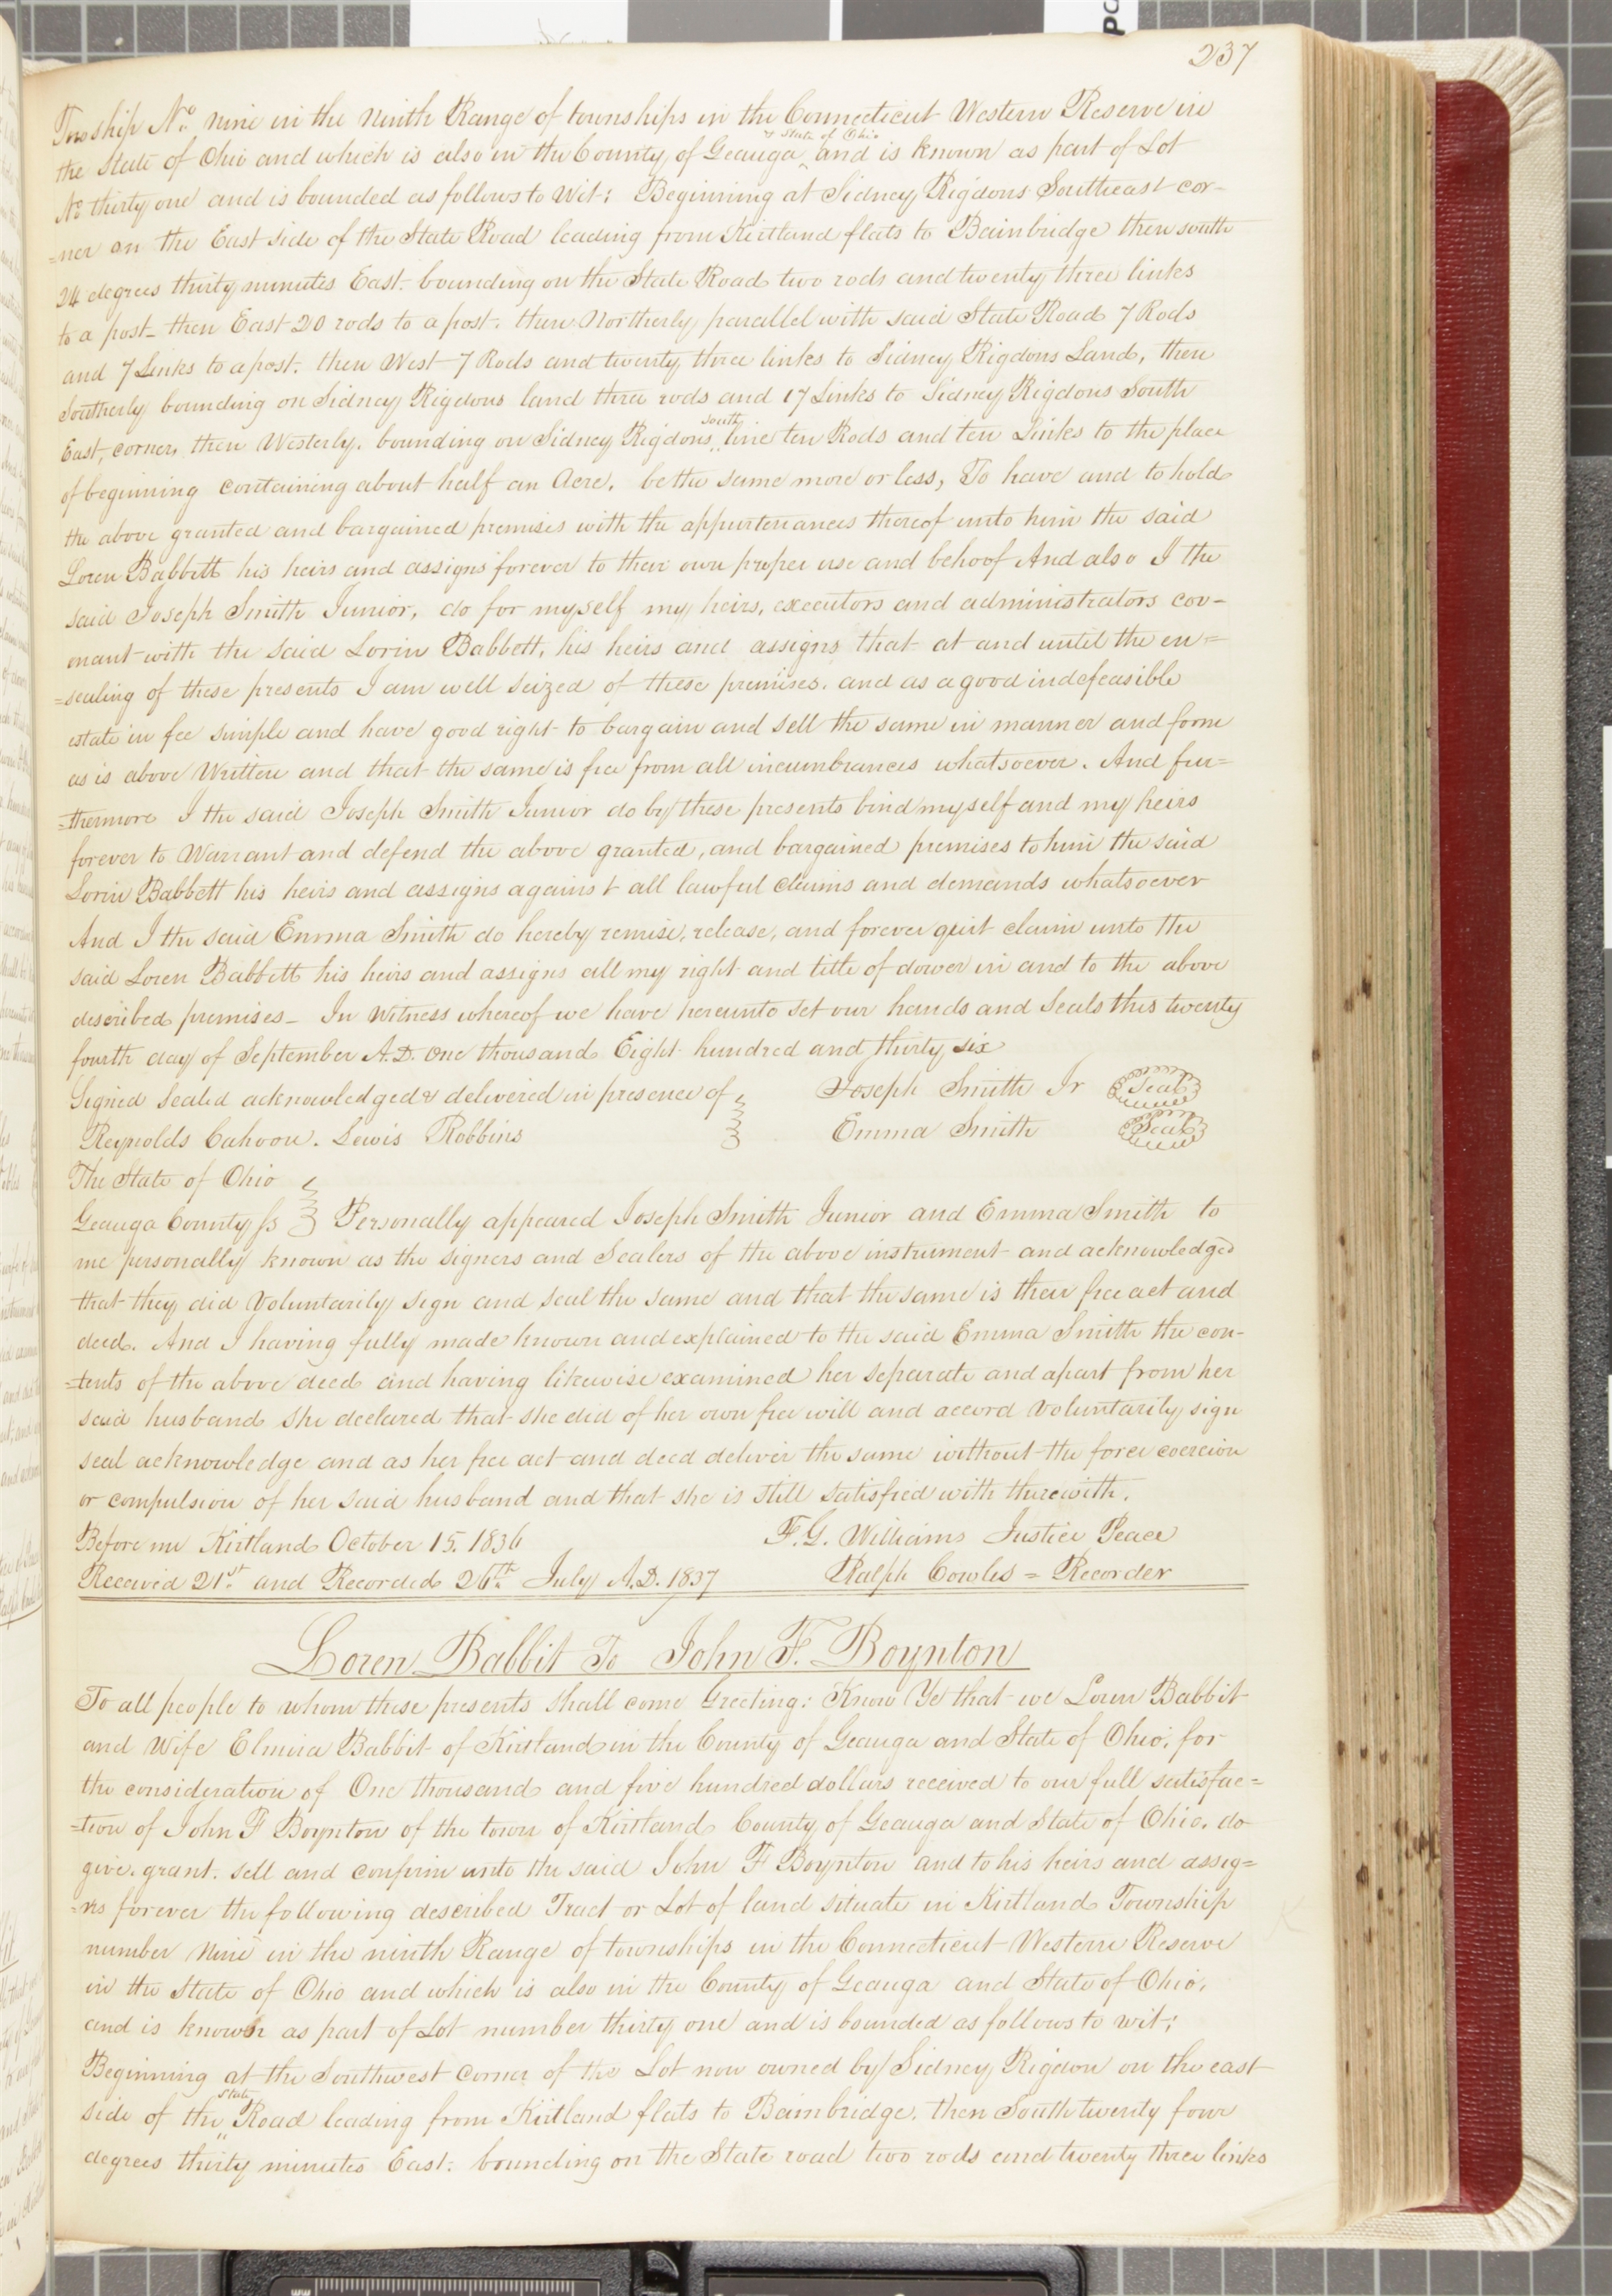 237
Township No. nine in the ninth Range of townships in the Connecticut Western Reserve in
& State of Ohio
the State of Ohio and which is also in the County of Geauga ‸ and is known as part of Lot
No thirty one and is bounded as follows to Wit: Beginning at Sidney Rigdons Southeast cor-
=ner on the East side of the State Road leading from Kirtland flats to Bainbridge then south
24 degrees thirty minutes East. bounding on the State Road two rods and twenty three links
to a post- then East 20 rods to a post. then Northerly parallel with said State Road 7 Rods
and 7 Links to a post. then West 7 Rods and twenty three links to Sidney Rigdons Land, then
Southerly bounding on Sidney Rigdons land three rods and 17 Links to Sidney Rigdons South
south
East, corner, then Westerly. bounding on Sidney Rigdons „ line ten Rods and ten Links to the place
of beginning containing about half an Acre. be the same more or less, To have and to hold
the above granted and bargained premises with the appurtenances thereof unto him the said
Loren Babbett his heirs and assigns forever to their own proper use and behoof And also I the
said Joseph Smith Junior, do for myself my heirs, executors and administrators cov-
enant with the said Lorin Babbett, his heirs and assigns that at and until the en=
=sealing of these presents I am well seized of these premises. and as a good indefeasible
estate in fee simple and have good right to bargain and sell the same in manner and form
as is above Written and that the same is free from all incumbrances whatsoever. And fur=
=thermore I the said Joseph Smith Junior do by these presents bind myself and my heirs
forever to Warrant and defend the above granted, and bargained premises to him the said
Lorin Babbett his heirs and assigns against all lawful claims and demands whatsoever
And I the said Emma Smith do hereby remise, release, and forever quit claim unto the
said Loren Babbett his heirs and assigns all my right and title of dower in and to the above
described premises- In Witness whereof we have hereunto set our hands and Seals this twenty
fourth day of September A.D. One thousand Eight hundred and thirty six
Signed Sealed acknowledged & delivered in presence of Joseph Smith Jr Seal
Reynolds Cahoon. Lewis Robbins Emma Smith Seal
The State of Ohio
Geauga County ss Personally appeared Joseph Smith Junior and Emma Smith to
me personally known as the signers and Sealers of the above instrument and acknowledged
that they did Voluntarily sign and seal the same and that the same is their free act and
deed. And I having fully made known and explained to the said Emma Smith the con-
=tents of the above deed and having likewise examined her separate and apart from her
said husband she declared that she did of her own free will and accord Voluntarily sign
seal acknowledge and as her free act and deed deliver the same without the force coercion
or compulsion of her said husband and that she is still satisfied with therewith.
Before me Kirtland October 15. 1836 F. G. Williams Justice Peace
Received 21st. and Recorded 26th. July A.D. 1837 Ralph Cowles = Recorder
Loren Babbit To John F. Boynton
To all people to whom these presents shall come Greeting: Know Ye that we Loren Babbit
and Wife Elmira Babbit of Kirtland in the County of Geauga and State of Ohio. for
the consideration of One thousand and five hundred dollars received to our full satisfac=
=tion of John F Boynton of the town of Kirtland County of Geauga and State of Ohio. do
give. grant. sell and confirm unto the said John F Boynton and to his heirs and assig=
=ns forever the following described Tract or Lot of land situate in Kirtland Township
number Nine in the ninth Range of townships in the Connecticut Western Reserve
in the State of Ohio and which is also in the County of Geauga and State of Ohio.
and is known as part of Lot number thirty one and is bounded as follows to wit;
Beginning at the Southwest corner of the Lot now owned by Sidney Rigdon on the east
State
side of the „ Road leading from Kirtland flats to Bainbridge. then South twenty four
degrees thirty minutes East. bounding on the State road two rods and twenty three links